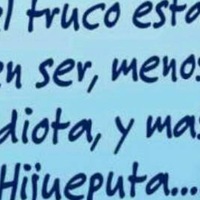 el truco esta
en ser, menos
idiota, y mas
Hijueputa...